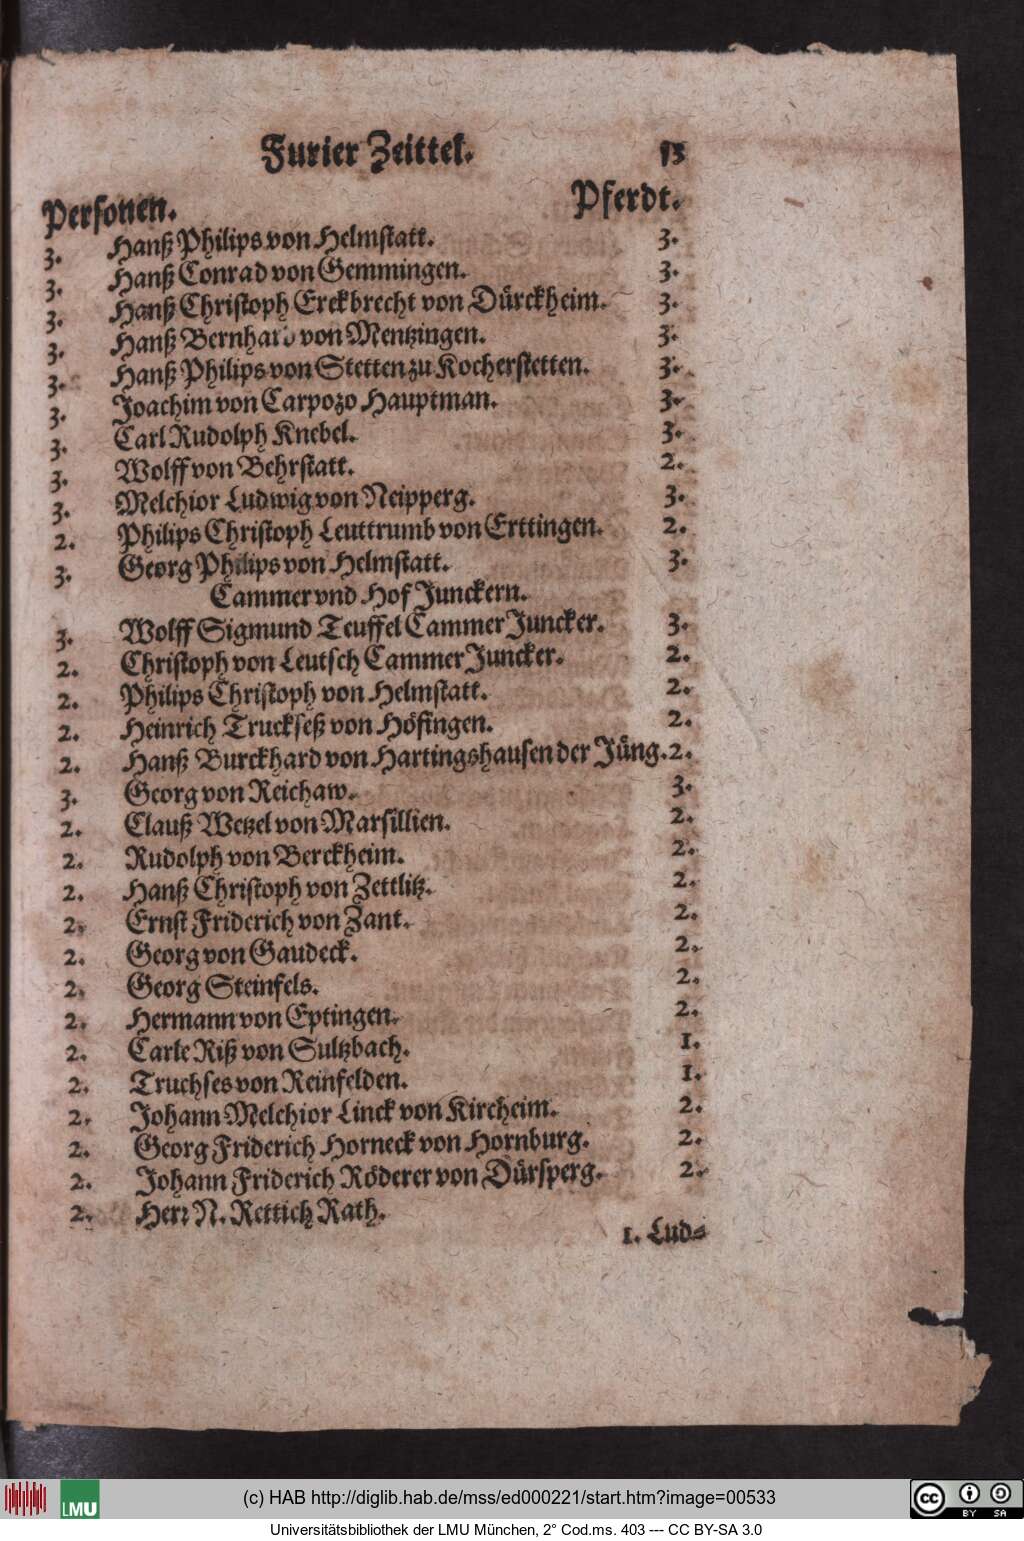 Furier Zeittel. 13
Personen. Pferdt.
3. Hanß Philips von Helmstatt. 3.
3. Hanß Conrad von Gemmingen. 3.
3. Hanß Christoph Erckbrecht von Dürckheim. 3.
3. Hanß Bernhard von Mentzingen. 3.
3. Hanß Philips von Stetten zu Kocherstetten. 3.
3. Joachim von Carpozo Hauptman. 3.
3. Carl Rudolph Knebel. 3.
3. Wolff von Behrstatt. 2.
3. Melchior Ludwig von Neipperg. 3.
2. Philips Christoph Leuttrumb von Erttingen. 2.
3. Georg Philips von Helmstatt. 3.
Cammer vnd Hof Junckern.
3. Wolff Sigmund Teuffel Cammer Juncker. 3.
2. Christoph von Leutsch Cammer Juncker. 2.
2. Philips Christoph von Helmstatt. 2.
2. Heinrich Truckseß von Höfingen. 2.
2. Hanß Burckhard von Hartingshausen der Jüng. 2.
3. Georg von Reichaw. 3.
2. Clauß Wetzel von Marsillien. 2.
2. Rudolph von Berckheim. 2.
2. Hanß Christoph von Zettlitz. 2.
2. Ernst Friderich von Zant. 2.
2. Georg von Gaudeck. 2.
2. Georg Steinfels. 2.
2. Hermann von Eptingen. 2.
2. Carle Riß von Sultzbach. 1.
2. Truchses von Reinfelden. 1.
2. Johann Melchior Linck von Kircheim. 2.
2. Georg Friderich Horneck von Hornburg. 2.
2. Johann Friderich Röderer von Dürsperg. 2.
2. Herr N. Rettich Rath.
1. Lud-
LMU
(c) HAB http://diglib.hab.de/mss/ed000221/start.htm?image=00533
cc BY SA
Universitätsbibliothek der LMU München, 2° Cod.ms. 403 --- CC BY-SA 3.0